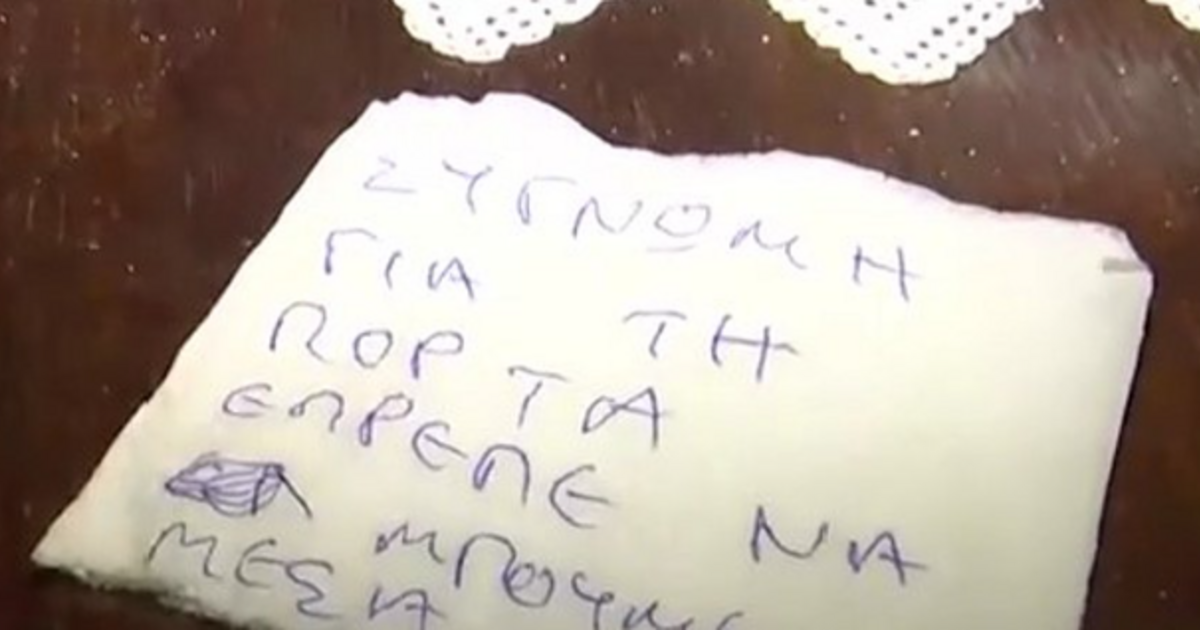 ΣΥΓΝΟΜΗ
ΓΙΑ ΤΗ
ΠΟΡΤΑ
ΕΠΡΕΠΕ ΝΑ
ΜΠΟΥΜΕ
ΜΕΣΑ